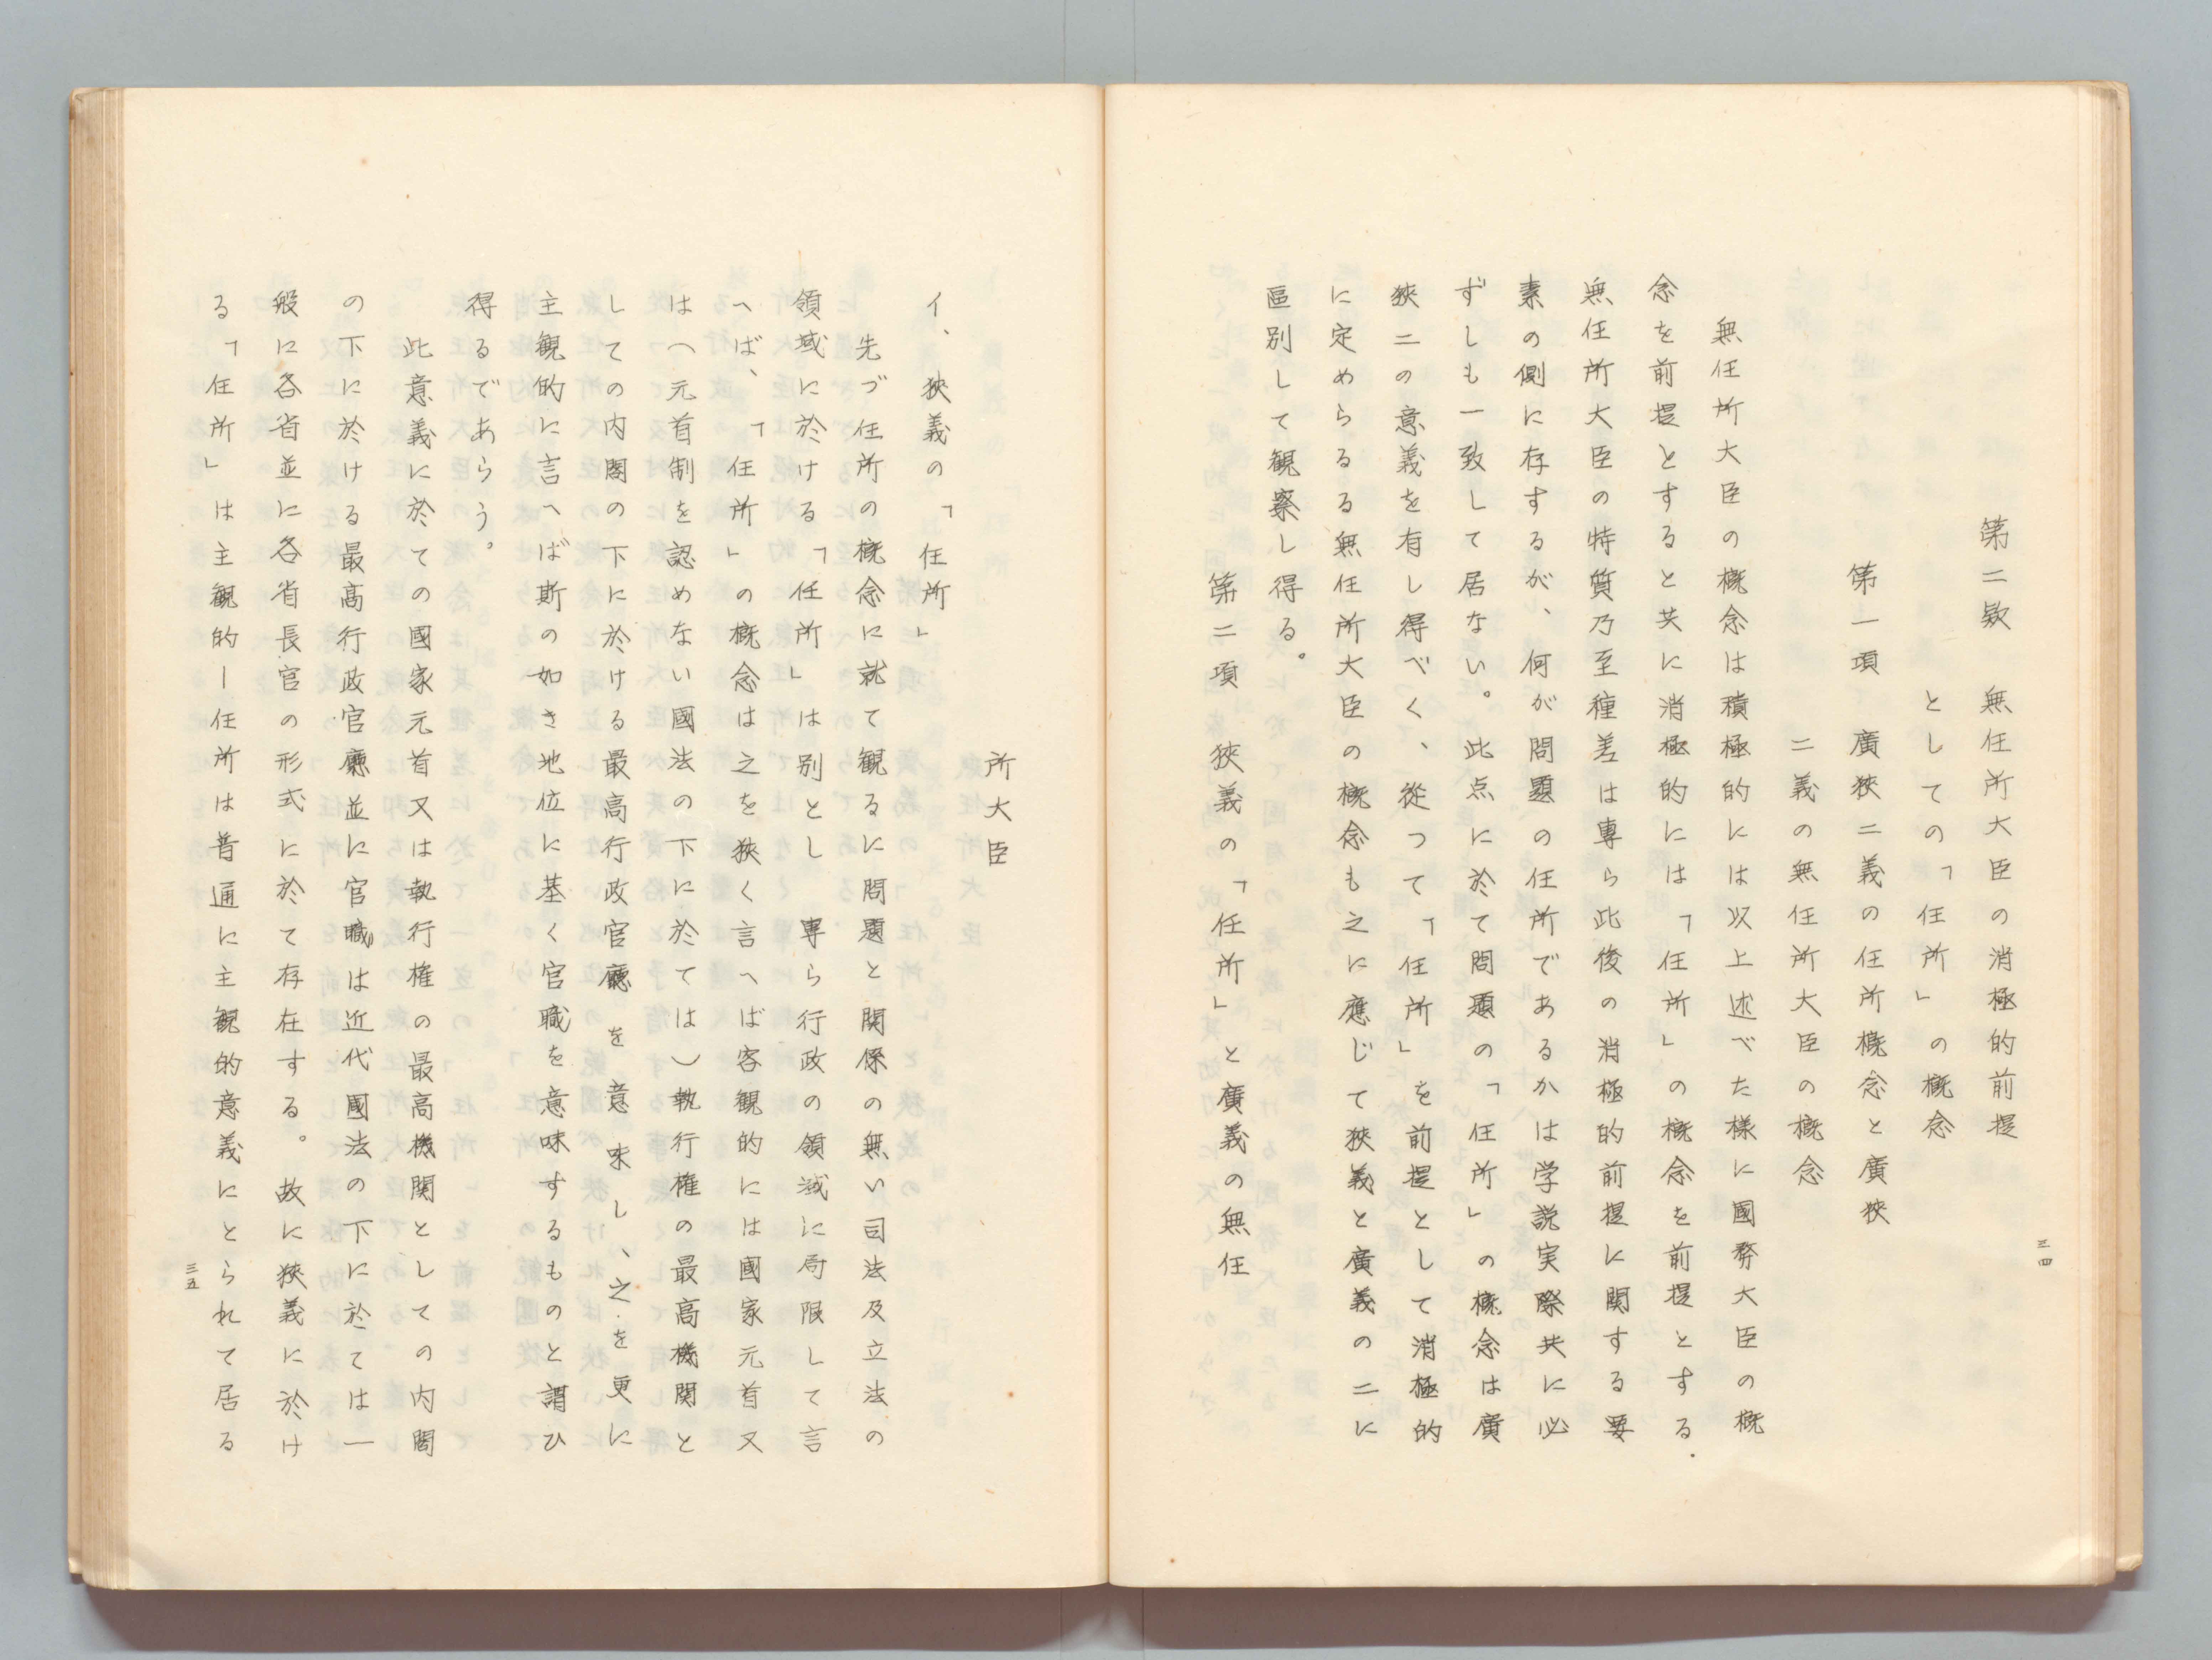 第二款　無任所大臣の消極的前提
としての「任所」の概念
第一項　廣狹二義の任所概念と廣狹
二義の無任所大臣の概念
無任所大臣の概念は積極的には以上述べた様に國務大臣の概
念を前提とすると共に消極的には「任所」の概念を前提とする.
無任所大臣の特質乃至種差は専ら此後の消極的前提に関する要
素の側に存するが、何が問題の任所であるかは学説実際共に必
ずしも一致して居ない。此点に於て問題の「任所」の概念は廣
狹二の意義を有し得べく、從つて「任所」を前提として消極的
に定めらるる無任所大臣の概念も之に應じて狹義と廣義の二に
區別して観察し得る。
第二項　狹義の「任所」と廣義の無任
三四
所大臣
イ、狹義の「任所」
先づ任所の概念に就て観るに問題と関係の無い司法及立法の
領域に於ける「任所」は別とし　専ら行政の領域に局限して言
へば、「任所」の概念は之を狹く言へば客観的には國家元首又
は（元首制を認めない國法の下に於ては）執行権の最高機関と
しての内閣の下に於ける最高行政官廳を意味し、之を更に
主観的に言へば斯の如き地位に基く官職を意味するものと謂ひ
得るであらう。
此意義に於ての國家元首又は執行権の最高機関としての内閣
の下に於ける最高行政官廳並に官職は近代國法の下に於ては一
般に各省並に各省長官の形式に於て存在する。故に狹義に於け
る「任所」は主観的ー任所は普通に主観的意義にとられて居る
三五